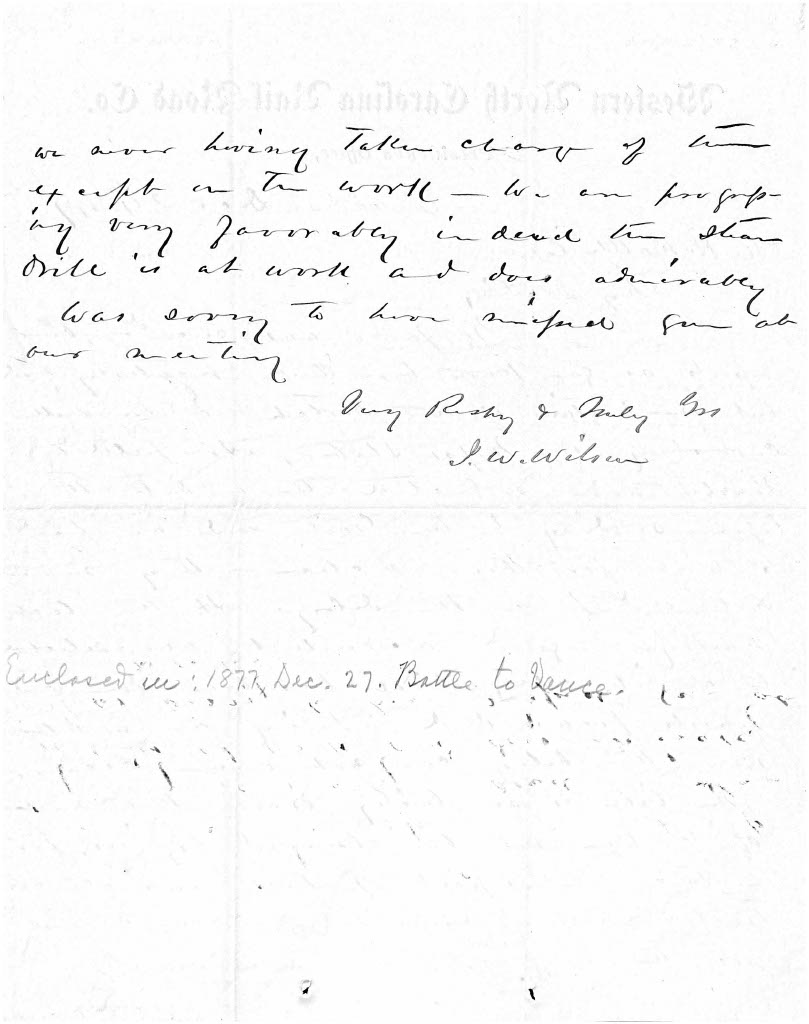 Western North Carolina Rail Road Co.
we never having taken charge of them
except on the work — We are progress-
ing very favorably indeed the steam
drill is at work and does admirably
Was sorry to have missed you at
our meeting
Very Respy & Truly Yrs
J. W. Wilson
Enclosed in: 1877, Dec. 27. Battle to Vance.